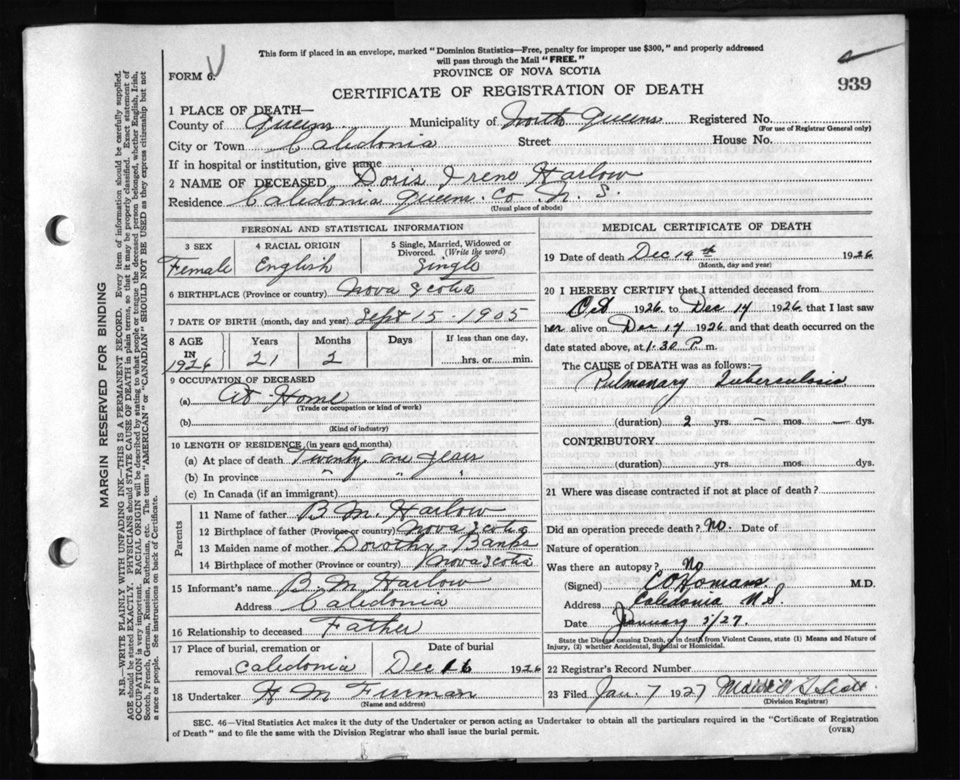 This form if placed in an envelope, marked "Dominion Statistics—Free, penalty for improper use $300," and properly addressed
will pass through the Mail "FREE."
FORM 6.
PROVINCE OF NOVA SCOTIA
939
CERTIFICATE OF REGISTRATION OF DEATH
1 PLACE OF DEATH—
County of Queens Municipality of North Queens Registered No.
(For use of Registrar General only)
City or Town Caledonia Street House No.
If in hospital or institution, give name
2 NAME OF DECEASED Doris Irene Harlow
Residence Caledonia Queens Co. N. S.
(Usual place of abode)
PERSONAL AND STATISTICAL INFORMATION
3 SEX 4 RACIAL ORIGIN 5 Single, Married, Widowed or
Divorced. (Write the word)
Female English Single
6 BIRTHPLACE (Province or country) Nova Scotia
7 DATE OF BIRTH (month, day and year) Sept 15 - 1905
8 AGE Years Months Days If less than one day,
IN
1926 21 2 hrs. or min.
9 OCCUPATION OF DECEASED
(a) At Home
(Trade or occupation or kind of work)
(b)
(Kind of industry)
10 LENGTH OF RESIDENCE (in years and months)
(a) At place of death Twenty one years
(b) In province " " "
(c) In Canada (if an immigrant)
Parents
11 Name of father B. M. Harlow
12 Birthplace of father (Province or country) Nova Scotia
13 Maiden name of mother Dorothy Banks
14 Birthplace of mother (Province or country) Nova Scotia
15 Informant's name B M Harlow
Address Caledonia
16 Relationship to deceased Father
17 Place of burial, cremation or Date of burial
removal Caledonia Dec 16 1926
18 Undertaker H M Furman
(Name and address)
MEDICAL CERTIFICATE OF DEATH
19 Date of death Dec 14th 1926
(Month, day and year)
20 I HEREBY CERTIFY that I attended deceased from
Oct 1926 to Dec 14 1926 that I last saw
her alive on Dec 14 1926 and that death occurred on the
date stated above, at 1.30 P. m.
The CAUSE of DEATH was as follows:
Pulmonary Tuberculosis
(duration) 2 yrs. - mos. - dys.
CONTRIBUTORY
(duration) yrs. mos. dys.
21 Where was disease contracted if not at place of death?
Did an operation precede death? No. Date of
Nature of operation
Was there an autopsy? No
(Signed) M.D.
Address Caledonia N.S.
Date January /27.
State the Disease causing Death, or in death from Violent Causes, state (1) Means and Nature of
Injury, (2) whether Accidental, Suicidal or Homicidal.
22 Registrar's Record Number
23 Filed Jan. 7 1927 Scott
(Division Registrar)
SEC. 46—Vital Statistics Act makes it the duty of the Undertaker or person acting as Undertaker to obtain all the particulars required in the "Certificate of Registration
of Death" and to file the same with the Division Registrar who shall issue the burial permit. (OVER)
MARGIN RESERVED FOR BINDING
N.B.—WRITE PLAINLY WITH UNFADING INK—THIS IS A PERMANENT RECORD. Every item of information should be carefully supplied.
AGE should be stated EXACTLY. PHYSICIANS should STATE CAUSE OF DEATH in plain terms, so that it may be properly classified. Exact statement of
OCCUPATION is very important. RACIAL ORIGIN will be described by stating to what people or tongue the deceased person belonged, whether English, Irish,
Scotch, French, German, Russian, Ruthenian, etc. The terms "AMERICAN" or "CANADIAN" SHOULD NOT BE USED as they express citizenship but not
a race or people. See instructions on back of Certificate.